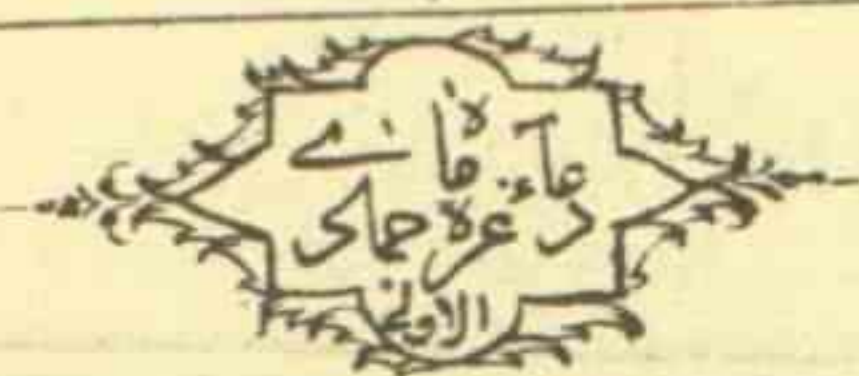 دعآء غرة ماه جمادى
الاولى